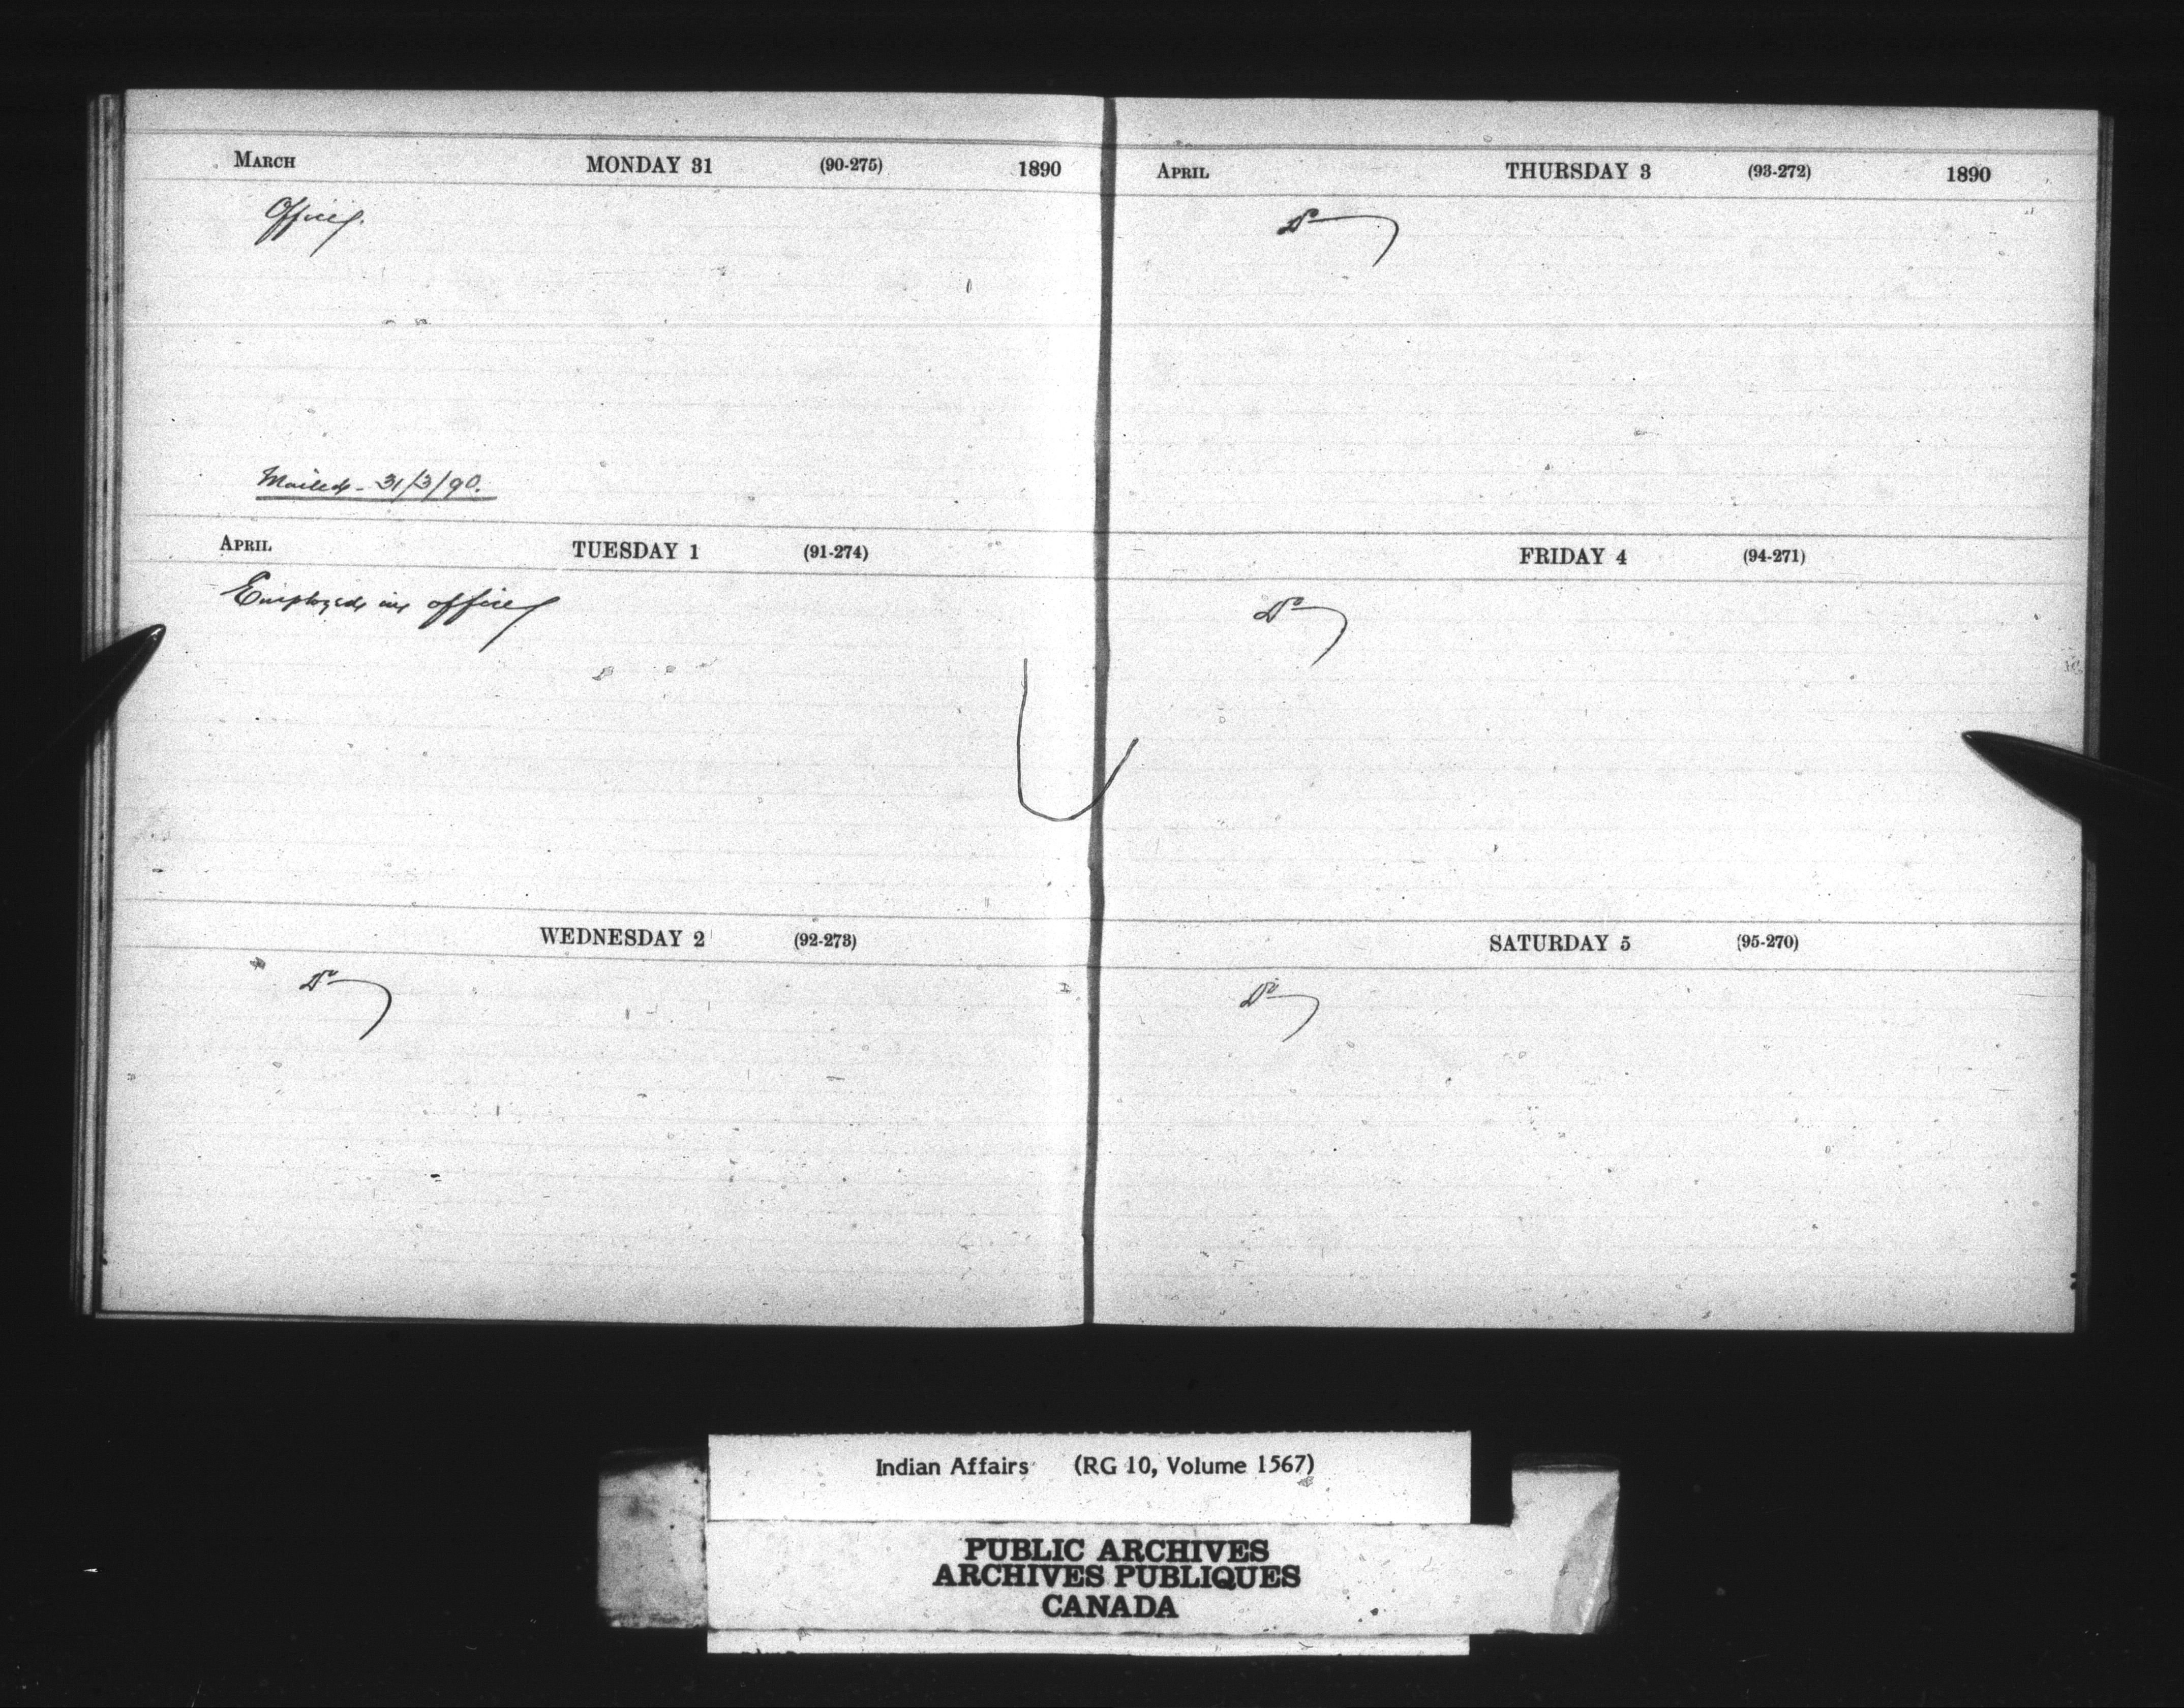 MARCH MONDAY 31 (90-275) 1890
Office.
Mailed - 31/3/90.
APRIL TUESDAY 1 (91-274)
Employed in office
WEDNESDAY 2 (92-273)
Do
APRIL THURSDAY 3 (93-272) 1890
Do
FRIDAY 4 (94-271)
Do
SATURDAY 5 (95-270)
Do
Indian Affairs (RG 10, Volume 1567)
PUBLIC ARCHIVES
ARCHIVES PUBLIQUES
CANADA